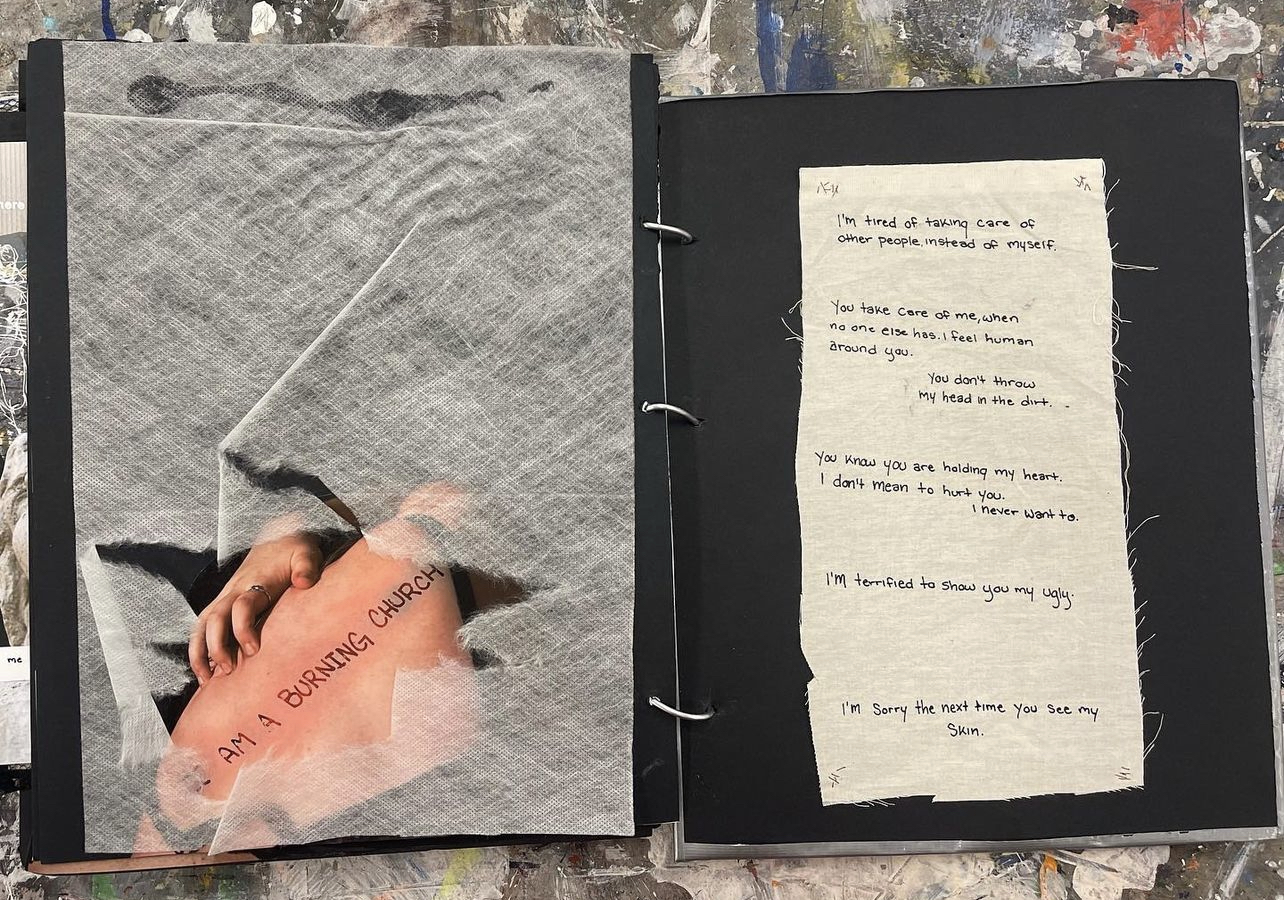 here
me
I AM A BURNING CHURCH
I'm tired of taking care of
other people, instead of myself.
You take care of me, when
no one else has. I feel human
around you.
You don't throw
my head in the dirt.
You know you are holding my heart.
I don't mean to hurt you.
I never want to.
I'm terrified to show you my ugly.
I'm sorry the next time you see my
skin.